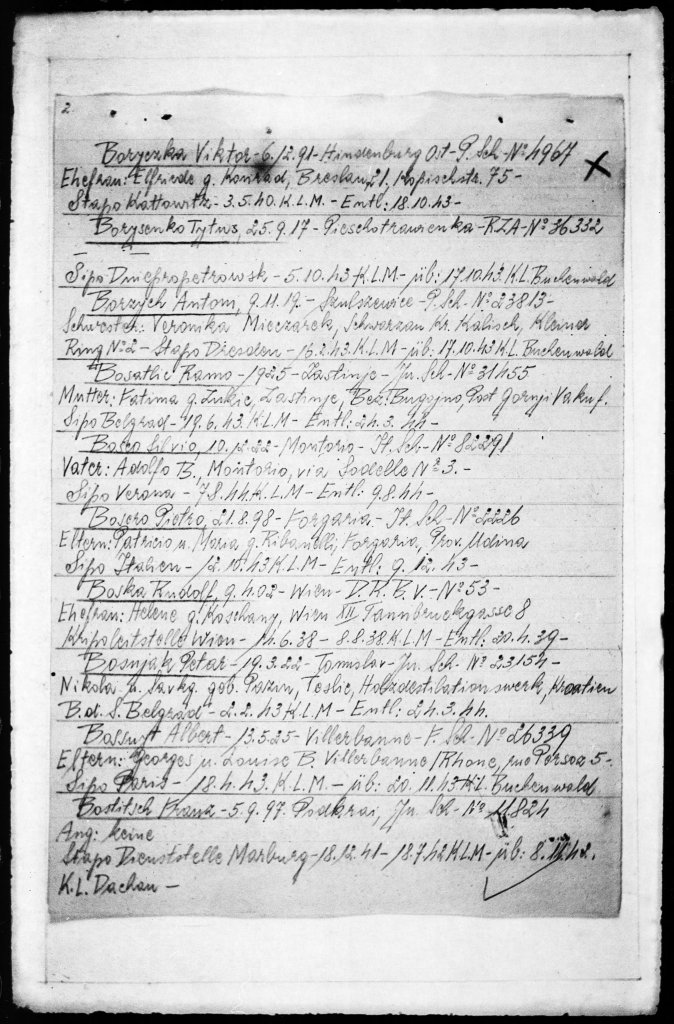 2
Boryczka Viktor-6.12.91-Hindenburg Ost-P. Sch-Nº4967
Ehefrau: Elfriede g. Konrad, Breslau, 21. Kopischstr. 75-
Stapo Kattowitz-3.5.40.K.L.M-Entl: 18.10.43-
Borysenko Tytus, 25.9.17-Pieschotrawienka-RZA-Nº36332
Sipo Dnepropetrowsk-5.10.43 K.L.M-üb: 17.10.43. K.L. Buchenwald
Borzych Antoni, 9.11.19.-Szulszewice-P. Sch. Nº23813-
Schwester: Veronika Mieczarek, Schwarzau Kr. Kalisch, Kleiner
Ring Nº2-Stapo Dresden-13.2.43.K.L.M-üb: 17.10.43 K.L. Buchenwald
Bosatlic Ramo-1925-Zastinje-Ju. Sch-Nº31455
Mutter: Fatima g. Zukic, Zastinje, Bez. Bugojno, Post Gornji Vakuf.
Sipo Belgrad-19.6.43.K.L.M-Entl: 24.3.44-
Bosco Silvio, 10.12.22-Montorio-It. Sch-Nº82291
Vater: Adolfo B., Montorio, via Sodelle Nº3.-
Sipo Verona-7.8.44.K.L.M-Entl: 9.8.44-
Bosero Pietro, 21.8.98-Forgaria-It. Sch-Nº2226
Eltern: Patricio u. Maria g. Ribanelli, Forgaria, Prov. Udina
Sipo Italien-12.10.43 K.L.M-Entl: 9.12.43-
Boska Rudolf, 9.4.02-Wien-D.R.B.V.-Nº53-
Ehefrau: Helene g. Koschany, Wien XII Tannbruckgasse 8
Kripoleitstelle Wien-14.6.38-8.8.38.K.L.M-Entl: 20.4.39-
Bosnjak Petar-19.3.22-Tomislav-Ju. Sch-Nº23154-
Nikola u. Savka geb. Pazin, Teslic, Holzdestilationswerk, Kroatien
B.d.S. Belgrad-2.2.43 K.L.M-Entl: 24.3.44.
Bossuyt Albert-13.5.25-Villerbanne-F. Sch-Nº26339
Eltern: Georges u. Louise B. Villerbanne/Rhone, rue Persoz 5-
Sipo Paris-18.4.43.K.L.M.-üb: 20.11.43 K.L. Buchenwald
Bostitsch Franz-5.9.97. Podkrai, Ju. Sch-Nº 11824
Ang: keine
Stapo Dienststelle Marburg-18.12.41-18.7.42 K.L.M-üb: 8.11.42.
K.L. Dachau-